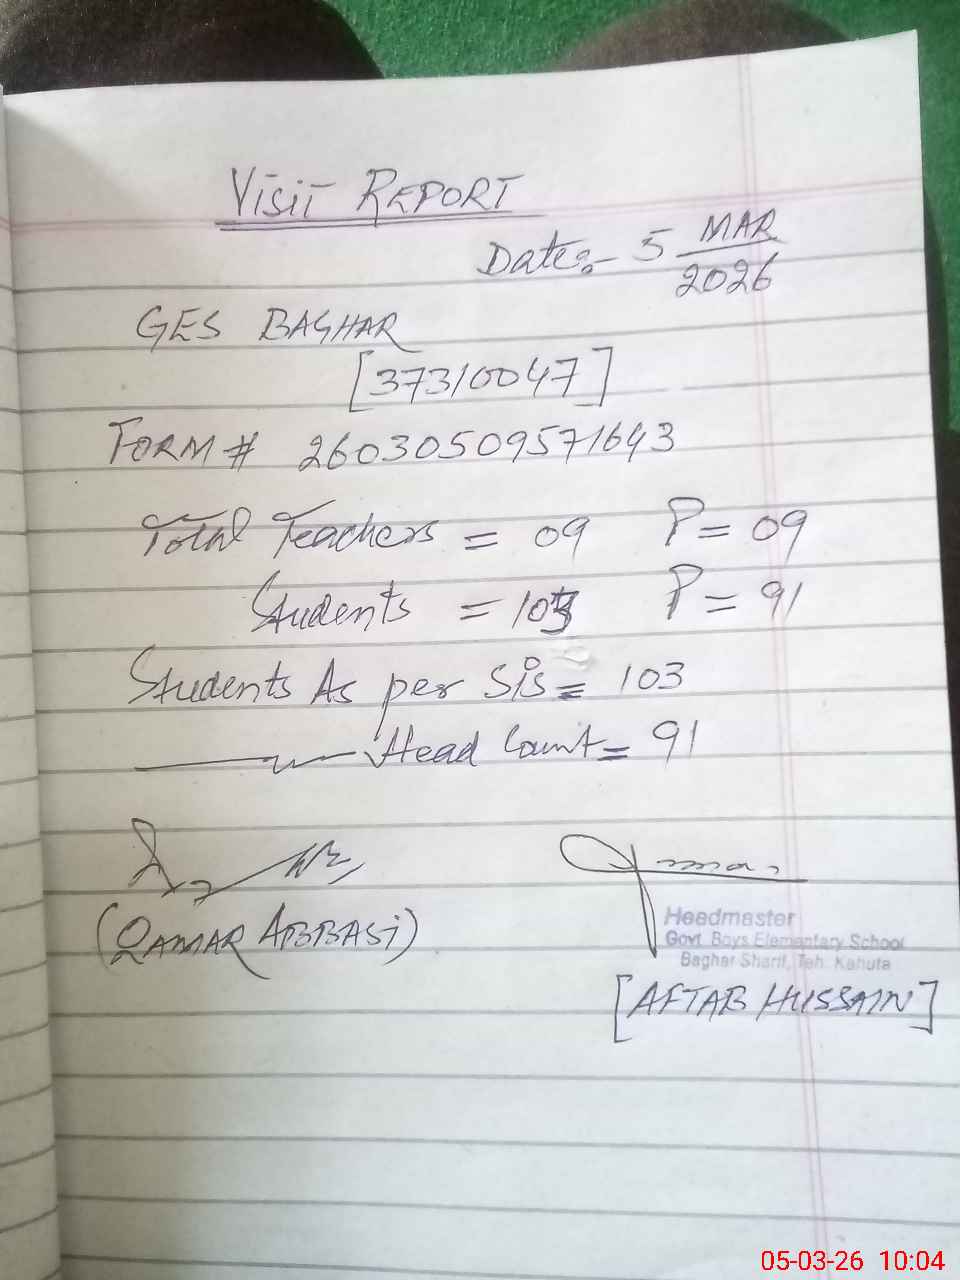 Visit REPORT
Date:- 5 MAR
2026
GES BAGHAR
[37310047]
FORM # 26030509571643
Total Teachers = 09 P = 09
Students = 103 P = 91
Students As per Sis = 103
Head Count = 91
(QAMAR ABBASi)
Headmaster
Govt. Boys Elementary School
Baghar Sharif, Teh. Kahuta
[AFTAB HUSSAIN]
05-03-26 10:04